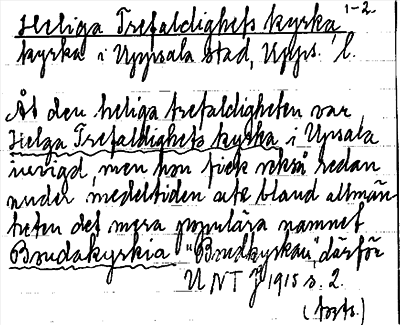 Heliga Trefaldighets kyrka 1-2.
kyrka i Uppsala stad, Upps. l.
Åt den heliga trefaldigheten var
Helga Trefaldighets kyrka i Upsala
invigd, men hon fick också redan
under medeltiden ute bland allmän-
heten det mera populära namnet
Bondakyrkia "Bondkyrkan", därför
UNT 1915 s. 2.
(forts.)